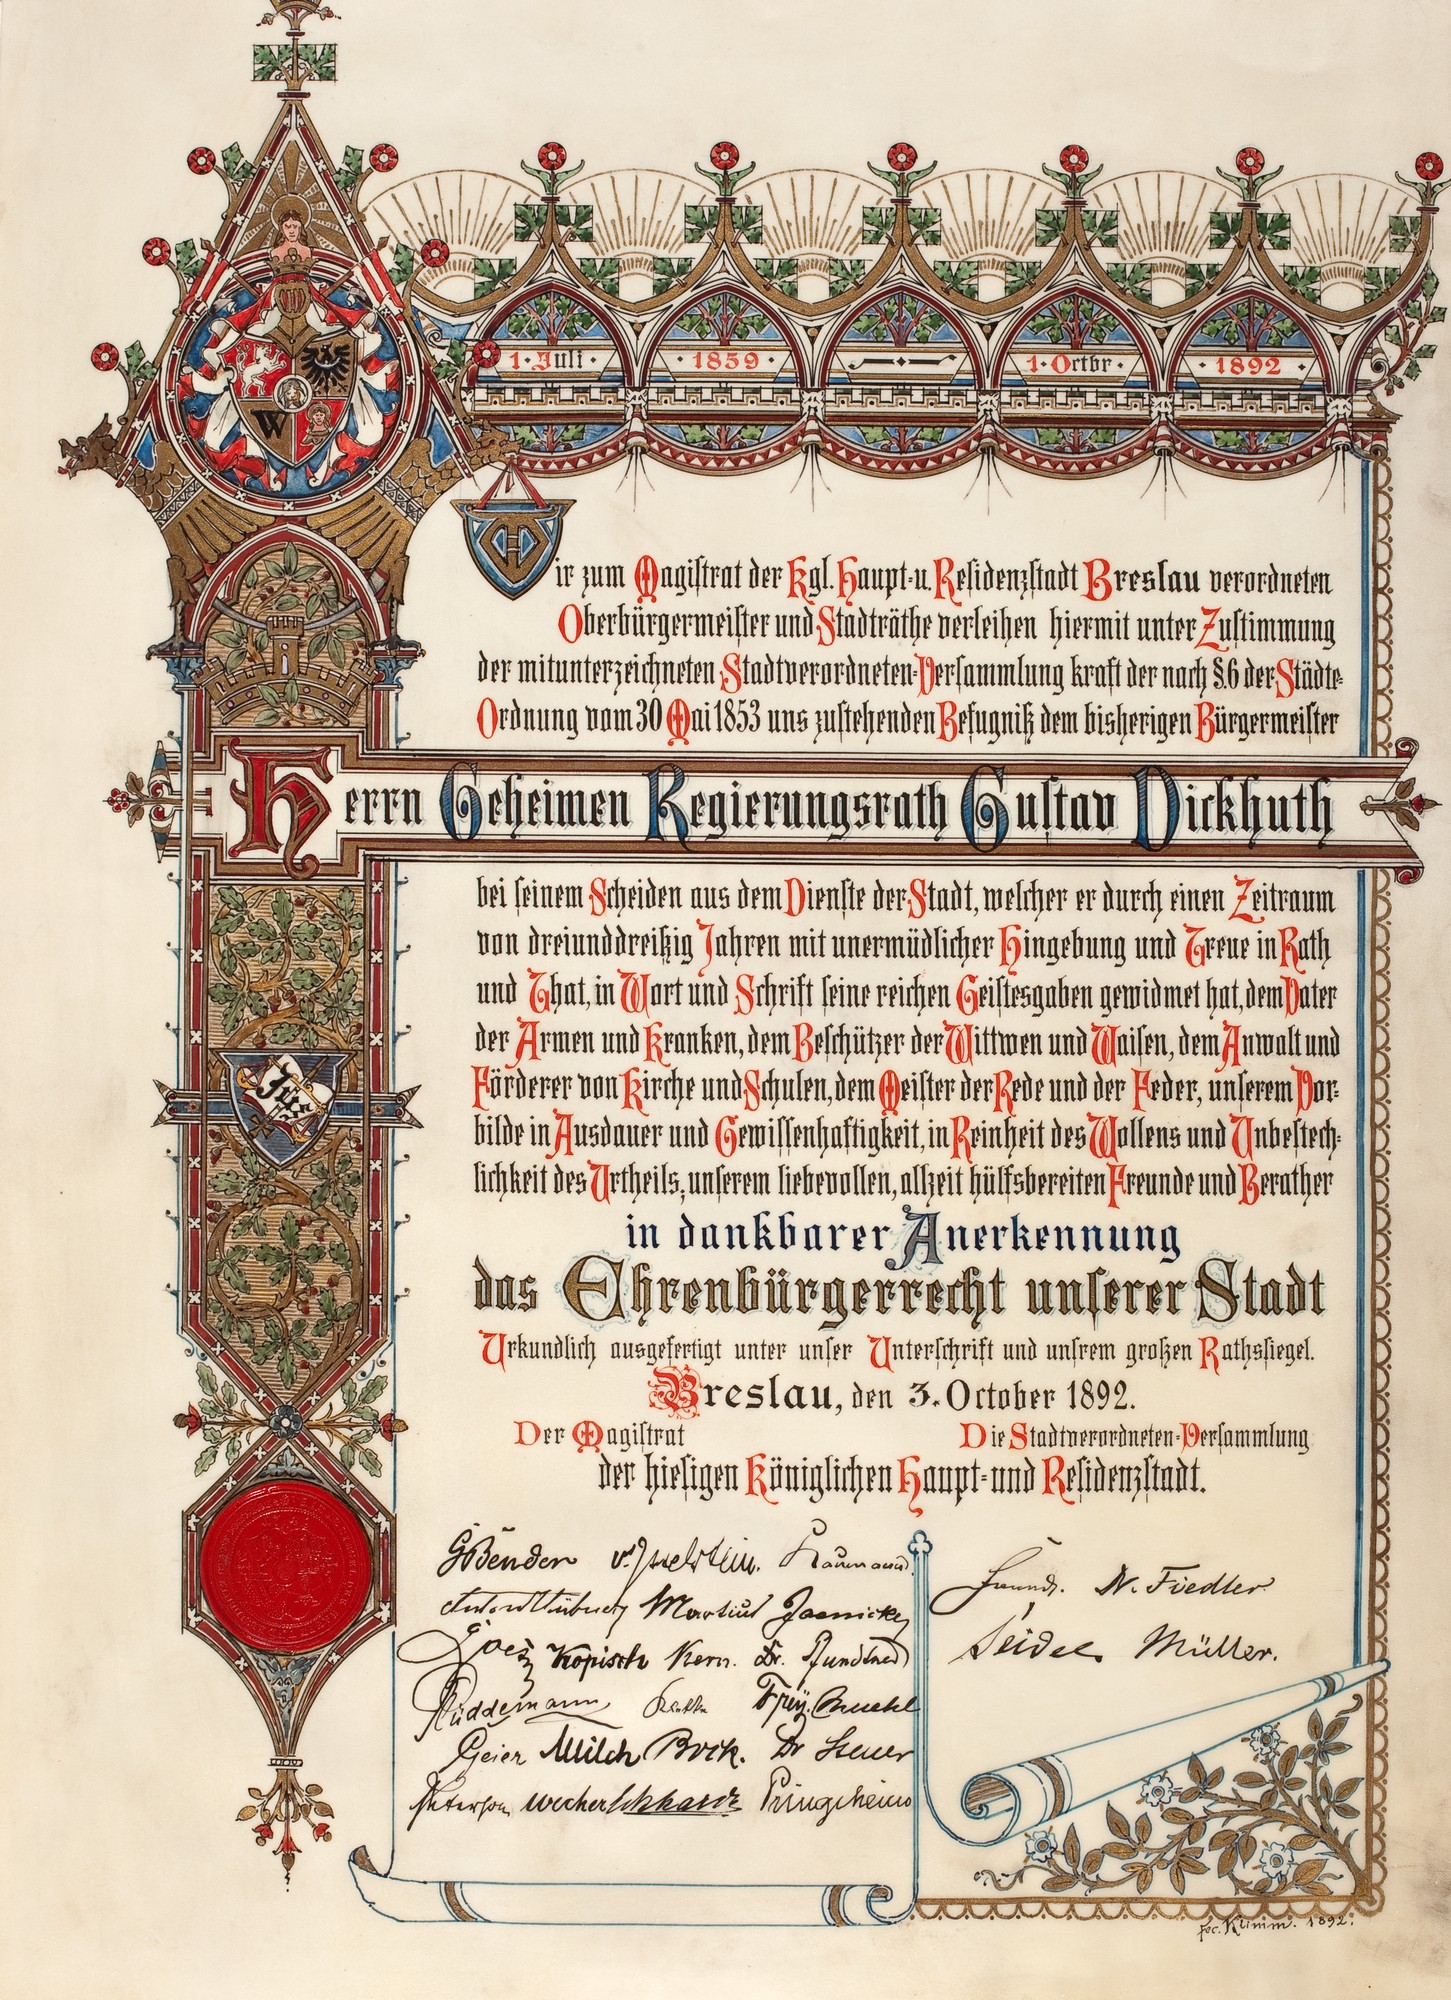 1. Juli
1859
1. Octbr.
1892
W
Wir zum Magistrat der Kgl. Haupt- u. Residenzstadt Breslau verordneten
Oberbürgermeister und Stadträthe verleihen hiermit unter Zustimmung
der mitunterzeichneten Stadtverordneten-Versammlung kraft der nach §. 6 der Städte-
Ordnung vom 30 Mai 1853 uns zustehenden Befugniß dem bisherigen Bürgermeister
Herrn Geheimen Regierungsrath Gustav Dickhuth
bei seinem Scheiden aus dem Dienste der Stadt, welcher er durch einen Zeitraum
von dreiunddreißig Jahren mit unermüdlicher Hingebung und Treue in Rath
und That, in Wort und Schrift seine reichen Geistesgaben gewidmet hat, dem Vater
der Armen und Kranken, dem Beschützer der Wittwen und Waisen, dem Anwalt und
Förderer von Kirche und Schulen, dem Meister der Rede und der Feder, unserem Vor-
bilde in Ausdauer und Gewissenhaftigkeit, in Reinheit des Wollens und Unbestech-
lichkeit des Urtheils, unserem liebevollen, allzeit hülfsbereiten Freunde und Berather
in dankbarer Anerkennung
das Ehrenbürgerrecht unserer Stadt
Urkundlich ausgefertigt unter unser Unterschrift und unsrem großen Rathssiegel.
Breslau, den 3. October 1892.
Der Magistrat Die Stadtverordneten-Versammlung
der hiesigen Königlichen Haupt- und Residenzstadt.
GBender v. Ysselstein.
Martius Jaenicke
Kopisch Kern. Dr.
Rüddemann
Geier Milch Bock. Dr Steuer
Pringsheim
Freund. Dr. Fiedler
Seidel Müller.
fec. Klimm. 1892.